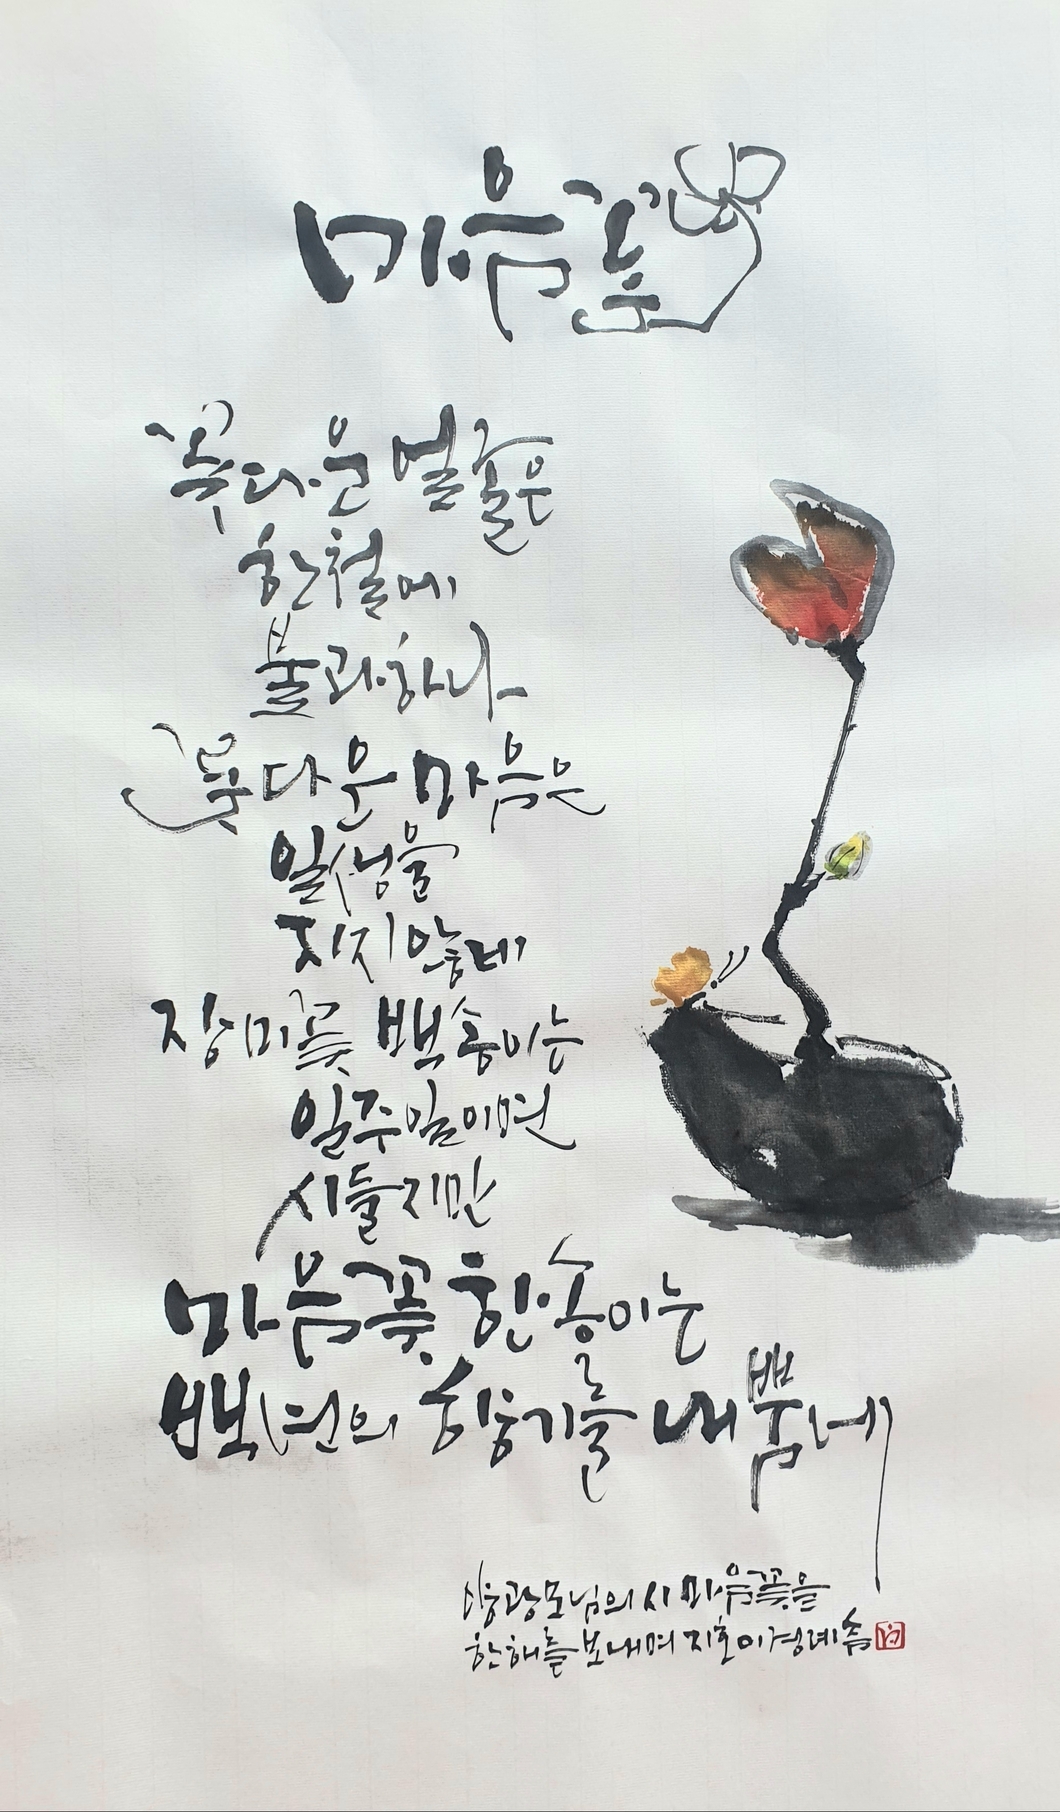 마음꽃
꽃다운 얼굴은
한철에
불과하나
꽃다운 마음은
일생을
지지 않네
장미꽃 백송이는
일주일이면
시들지만
마음꽃 한송이는
백년의 향기를 내뿜네
양광모님의 시 마음꽃을
한해를 보내며 지호 이경례 씀